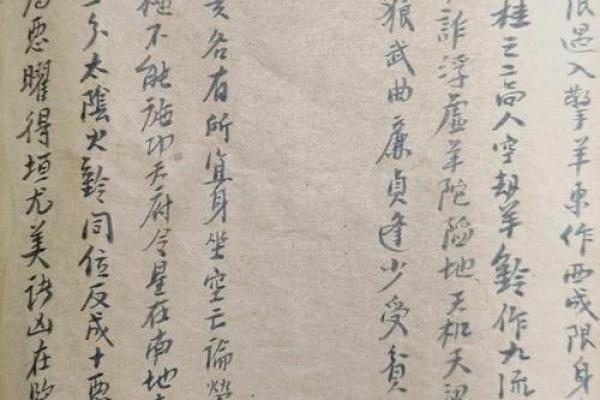 限遇入擎羊東作西成限身
桂高人空劫羊鈴作九流
詐浮虛羊陀陷地天机天梁
狼武曲廉貞逢少受貧
亥各有所宜身坐空亡論榮
極不能施功天府令星在南地
分太陰火鈴同位反成十惡
為惡曜得垣尤美諸凶在